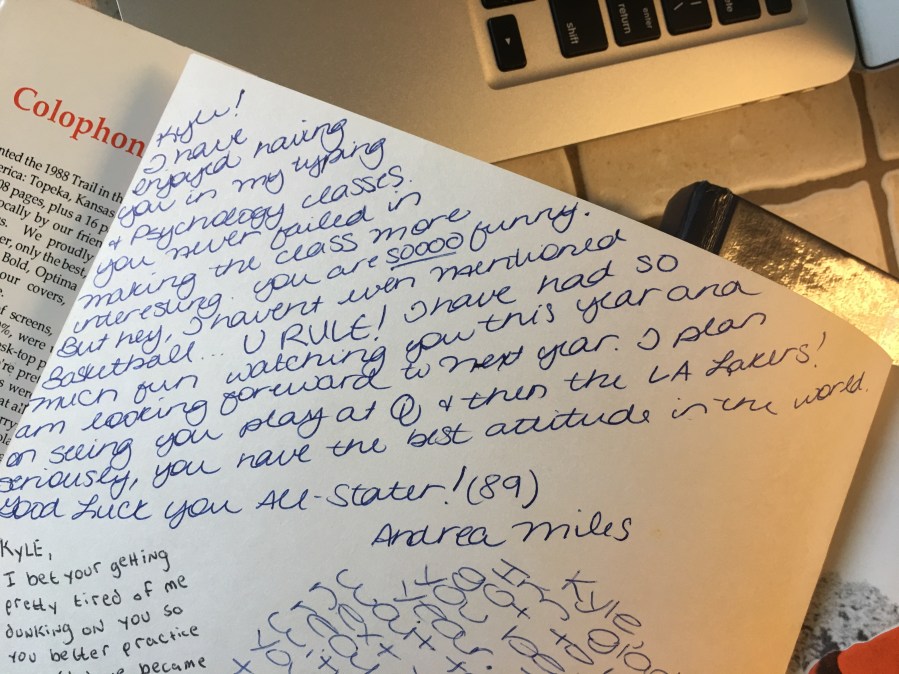 Colophon
nted the 1988 Trail in th
erica: Topeka, Kansas
08 pages, plus a 16 p
ocally by our frien
s. We proudly
er, only the best,
Bold, Optima
our covers,
e.
of screens,
%, were
sk-top p
're pre
s wer
at a
Kyle!
I have
enjoyed having
you in my typing
& Psychology classes.
you never failed in
making the class more
interesting. you are soooo funny.
But hey, I havent even mentioned
Basketball... U RULE! I have had so
much fun watching you this year and
am looking forward to next year. I plan
on seeing you play at Q & then the LA Lakers!
seriously, you have the best attitude in the world.
Good Luck you All-Stater! (89)
Andrea Miles
KYLE,
I bet your getting
pretty tired of me
dunking on you so
you better practice
became
Kyle,
I'm glad
I got to
you
year.
next
shift
return
enter